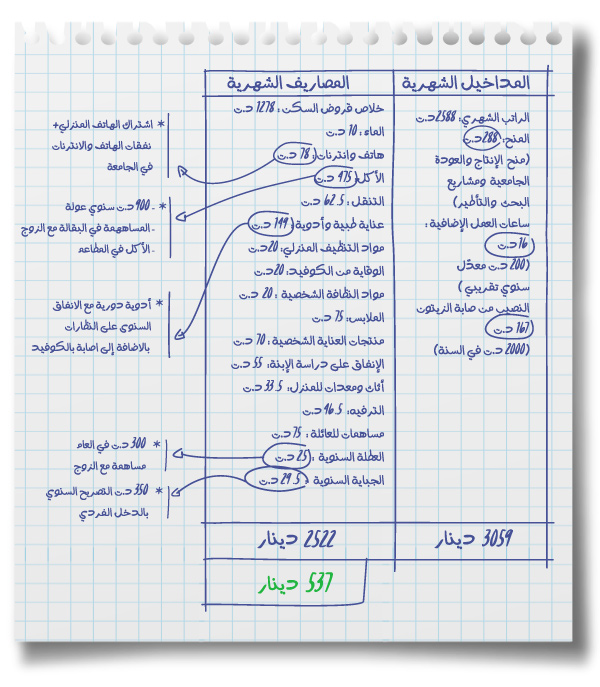 المداخيل الشهرية
الراتب الشهري: 2588د.ت
المنح: 288د.ت
(منح الإنتاج والعودة
الجامعية ومشاريع
البحث والتأطير)
ساعات العمل الإضافية:
16د.ت
(200 د.ت معدّل
سنوي تقريبي)
النصيب من صابة الزيتون
167د.ت
(2000 د.ت في السنة)
3059 دينار
المصاريف الشهرية
خلاص قروض السكن: 1278 د.ت
الماء: 10 د.ت
هاتف وانترنات: 78 د.ت
الأكل: 475 د.ت
التنقل: 62.5 د.ت
عناية طبية وأدوية: 149 د.ت
مواد التنظيف المنزلي: 20د.ت
الوقاية من الكوفيد: 20د.ت
مواد النظافة الشخصية : 20 د.ت
الملابس: 75 د.ت
منتجات العناية الشخصية: 70 د.ت
الإنفاق على دراسة الإبنة: 55 د.ت
أثاث ومعدات للمنزل: 33.5 د.ت
الترفيه: 46.5 د.ت
مساهمات للعائلة : 75 د.ت
العطلة السنوية : 25 د.ت
الجباية السنوية : 29.5 د.ت
2522 دينار
537 دينار
* اشتراك الهاتف المنزلي+
نفقات الهاتف والانترنات
في الجامعة
* ـ 900 د.ت سنوي عولة
ـ المساهمة في البقالة مع الزوج
ـ الأكل في المطاعم
* أدوية دورية مع الانفاق
السنوي على النظارات
بالاضافة إلى اصابة بالكوفيد
* 300 د.ت في العام
مساهمة مع الزوج
* 350 د.ت التصريح السنوي
بالدخل الفردي